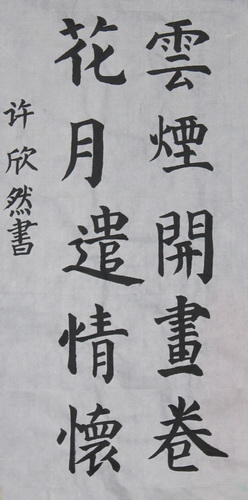 雲煙開畫卷
花月遣情懷
许欣然書